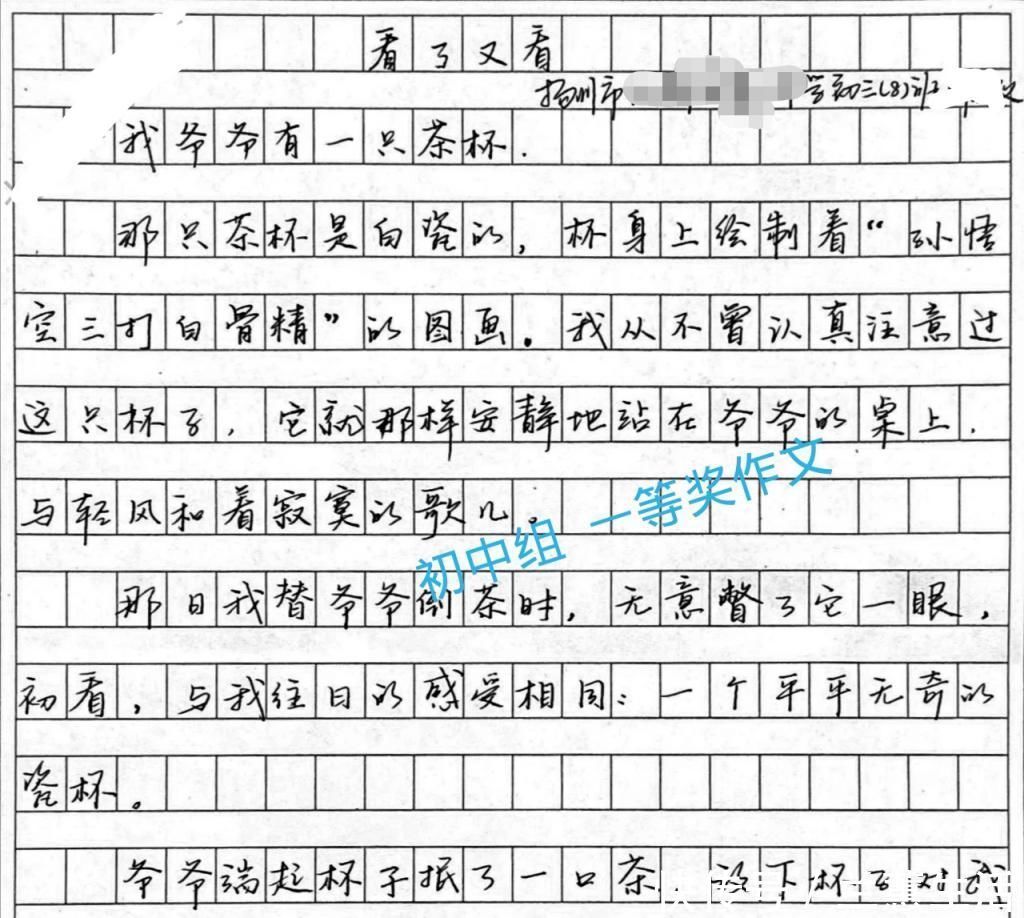 看了又看
扬州市 学初三(8)班
我爷爷有一只茶杯.
那只茶杯是白瓷的,杯身上绘制着“孙悟
空三打白骨精”的图画。我从不曾认真注意过
这只杯子,它就那样安静地站在爷爷的桌上,
与轻风和着寂寞的歌儿。
初中组 一等奖作文
那日我替爷爷倒茶时,无意瞥了它一眼,
初看,与我往日的感受相同:一个平平无奇的
瓷杯。
爷爷端起杯子抿了一口茶 下杯子对我